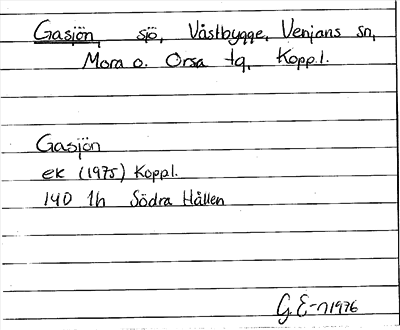 Gasjön, sjö, Våstbygge, Venjans sn,
Mora o. Orsa tg, Kopp.l.
Gasjön
ek (1975) Koppl.
140 1h Södra Hållen
G.E-n 1976